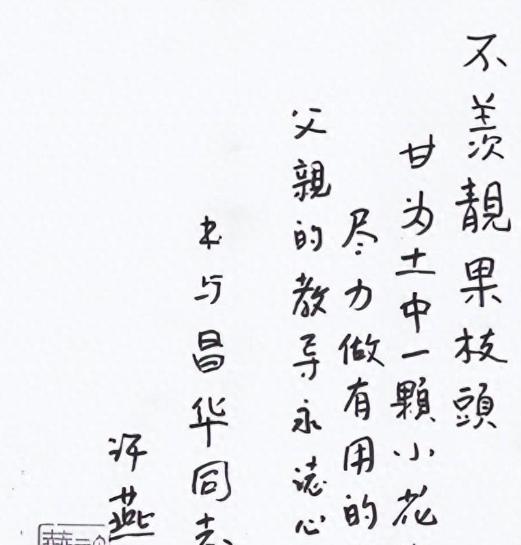 不羡靚果枝頭
甘为土中一顆小花
尽力做有用的
父親的教导永誌心
书与昌华同志
许燕